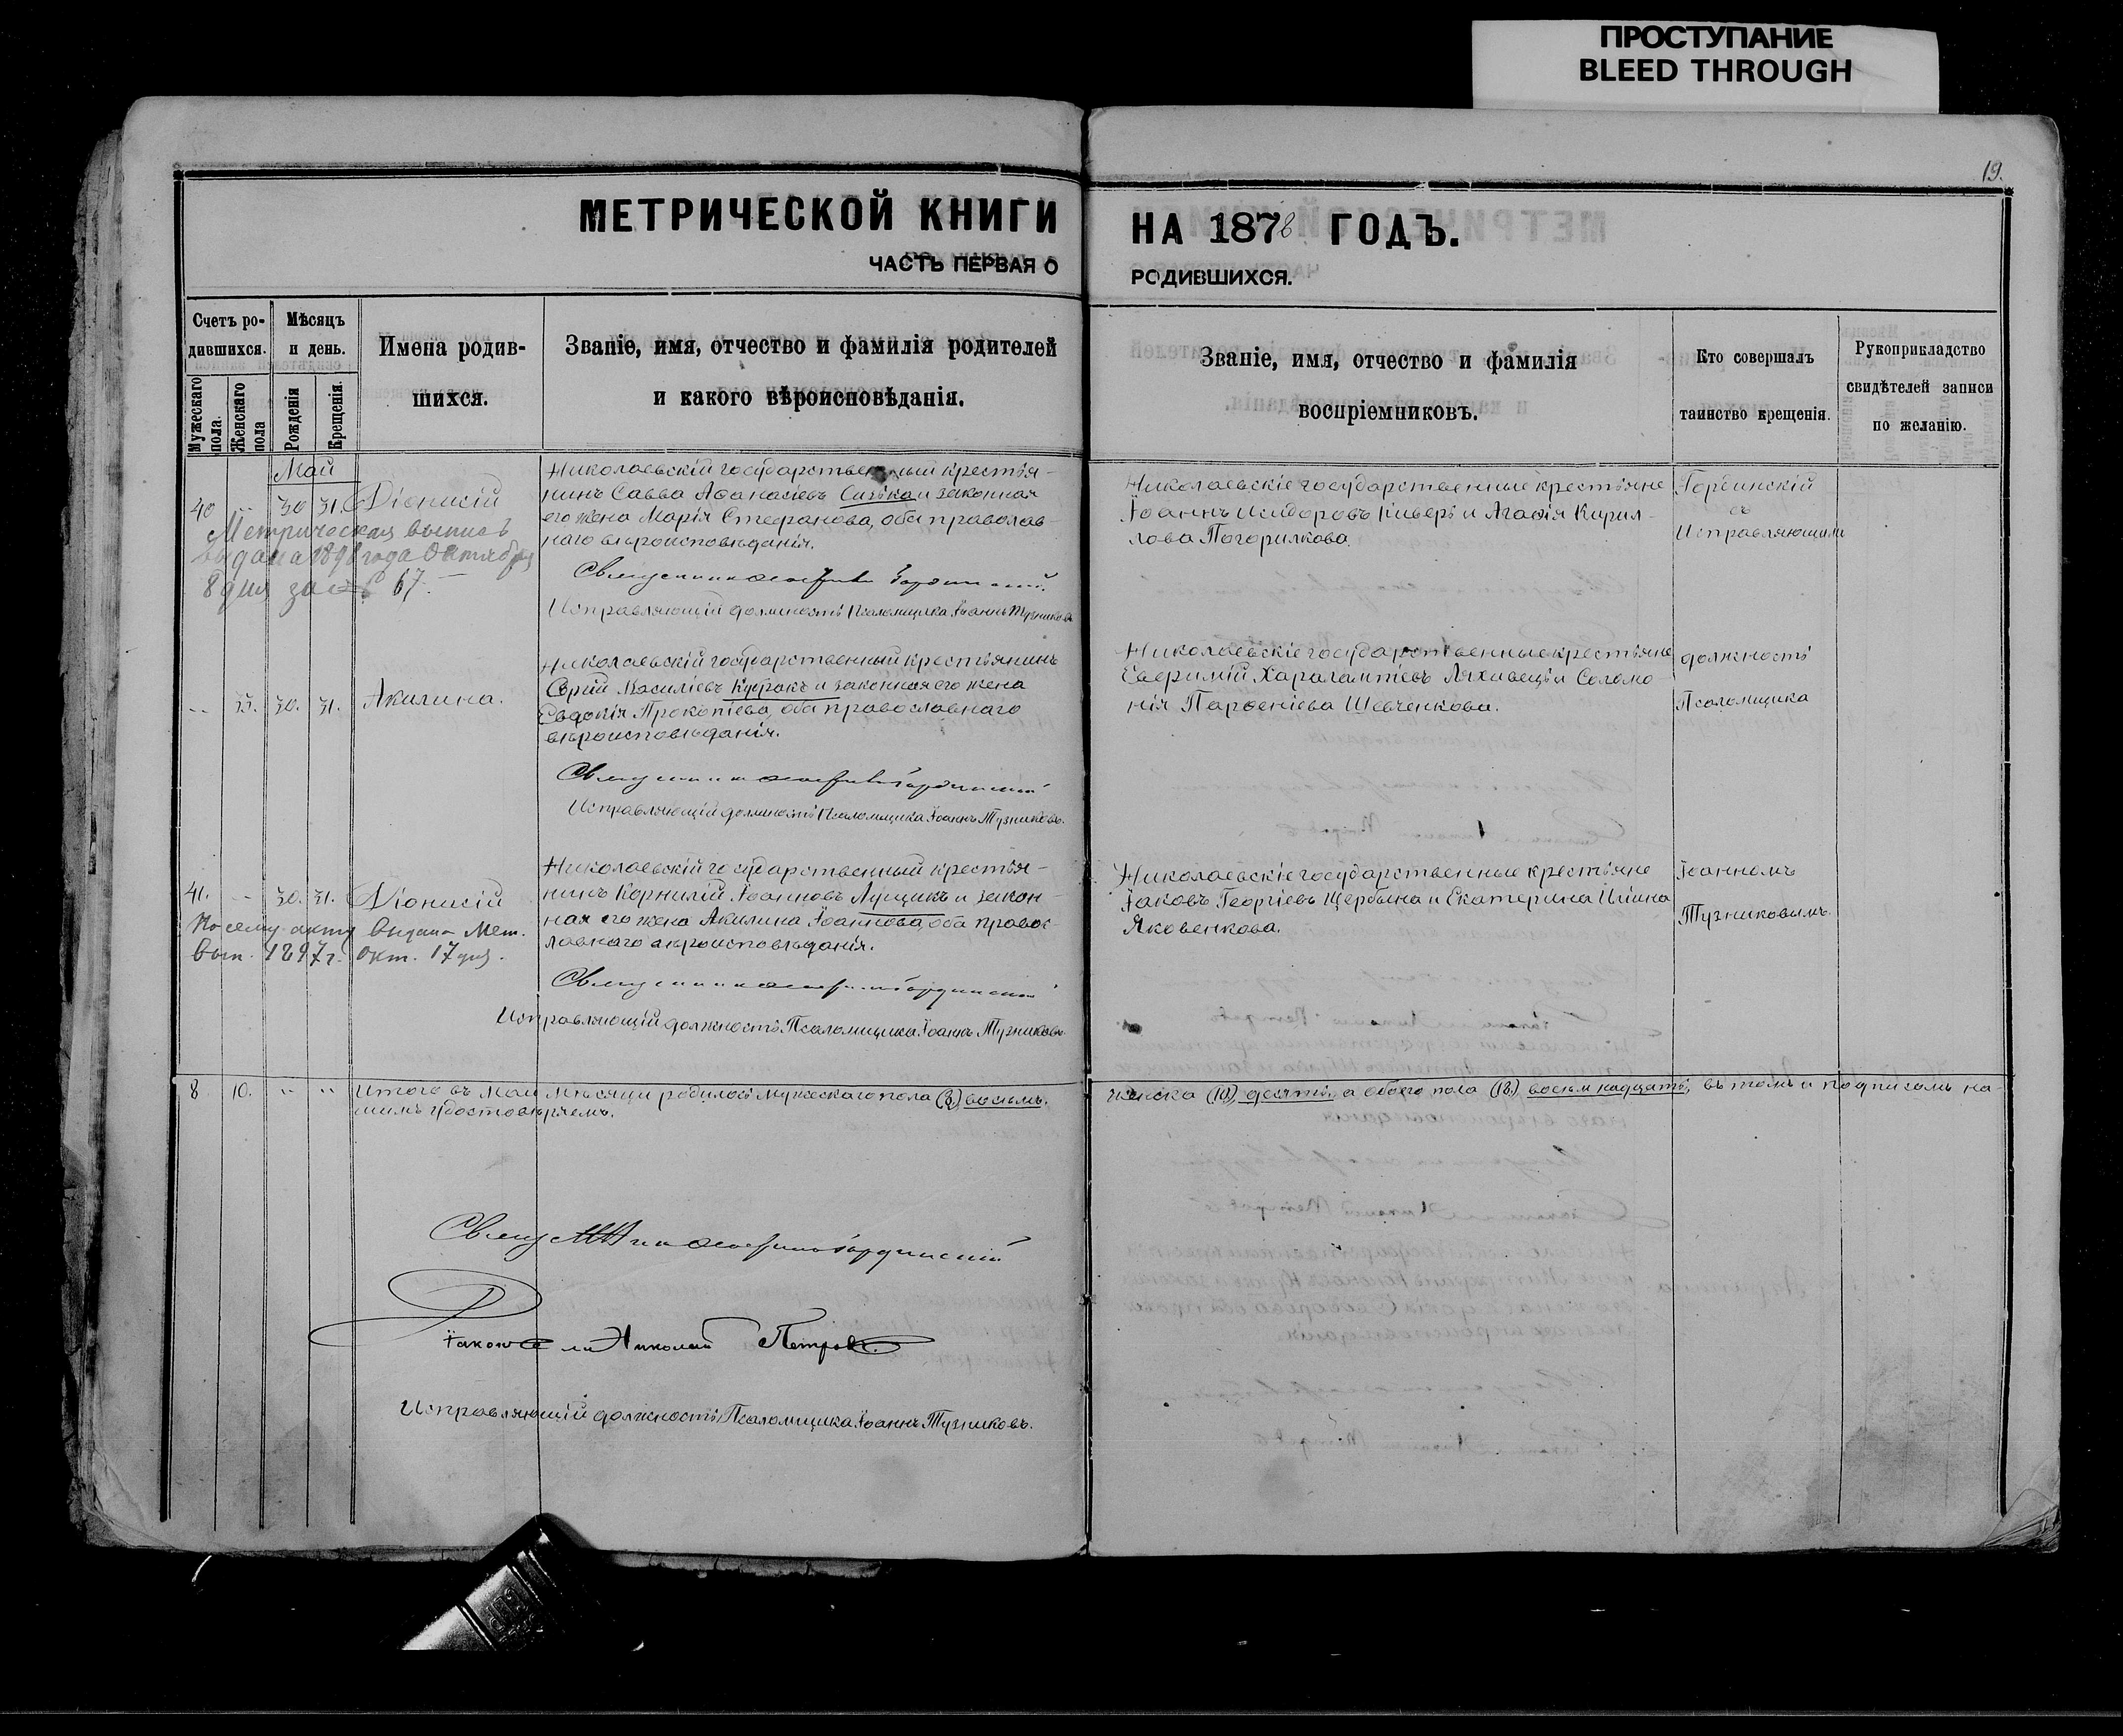 ПРОСТУПАНИЕ
BLEED THROUGH
19.
МЕТРИЧЕСКОЙ КНИГИ
ЧАСТЬ ПЕРВАЯ О
НА 1878 ГОДЪ.
РОДИВШИХСЯ.
Счетъ ро-
дившихся.
Мужескаго пола.
Женскаго пола
Мѣсяцъ
и день.
Рожденія
Крещенія.
Имена родив-
шихся.
Званіе, имя, отчество и фамилія родителей
и какого вѣроисповѣданія.
Званіе, имя, отчество и фамилія
воспріемниковъ.
Кто совершалъ
таинство крещенія.
Рукоприкладство
свидѣтелей записи
по желанію.
Май
40 .. 30 31. Діонисій
Метрическая выпись
выдана 1898 года Октября
8 дня за № 67.
Николаевскій государственный крестья-
нинъ Савва Аѳанасіевъ и законная
его жена Марія Стефанова, оба православ-
наго вѣроисповѣданія.
Священникъ
Исправляющій должность Псаломщика Іоаннъ Тузниковъ
Николаевскіе государственные крестьяне
Іоаннъ Исидоровъ Киверъ и Агафія Кирил-
лова Погорилкова.
съ
Исправляющимъ
-- 30. 31. Акилина.
Николаевскій государственный крестьянинъ
Сергій Василіевъ и законная его жена
Евдокія Прокопіева, оба православнаго
вѣроисповѣданія.
Священникъ
Исправляющій должность Псаломщика Іоаннъ Тузниковъ.
Николаевскіе государственные крестьяне
Евфимій Харалампіевъ и Соломо
нія Парѳеніева Шевченкова.
должность
Псаломщика
41. -- 30. 31. Діонисій
По сему акту выдана Мет.
вып. 1897 г. окт. 17 дня.
Николаевскій государственный крестья-
нинъ Корнилій Іоанновъ и закон-
ная его жена Акилина оба правос-
лавнаго вѣроисповѣданія.
Священникъ
Исправляющій должность Псаломщика Іоаннъ Тузниковъ
Николаевскіе государственные крестьяне
Іаковъ Георгіевъ Щербина и Екатерина Иліина
Яковенкова.
Іоанномъ
Тузниковымъ.
8 10. .. .. Итого въ Маи мѣсяцѣ родилось мужескаго пола (8.) восемь.
женска (10.) десять, а обоего пола (18.) восемнадцать, въ томъ и подписомъ на-
шимъ удостовѣряемъ.
Священникъ
Николай Петровъ.
Исправляющій должность Псаломщика Іоаннъ Тузниковъ.